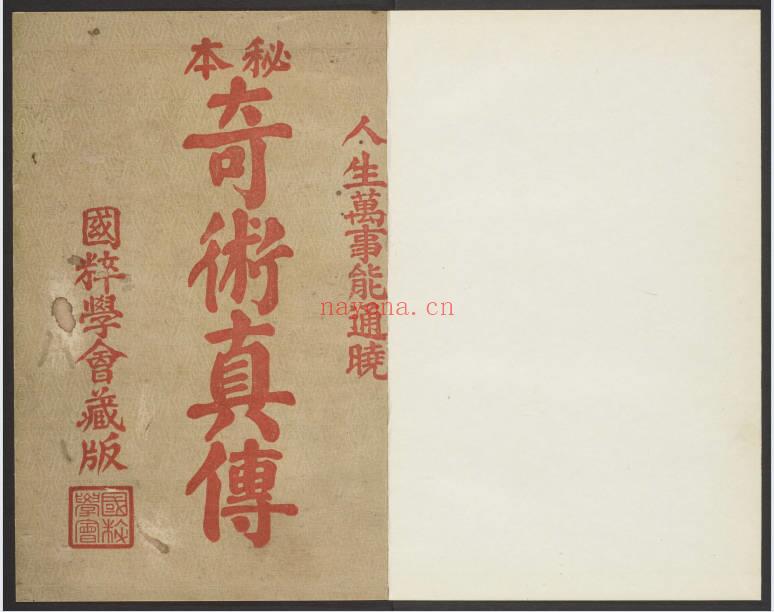 人生萬事能通曉
秘本
奇術真傳
國粹學會藏版
國粹學會
nayona.cn